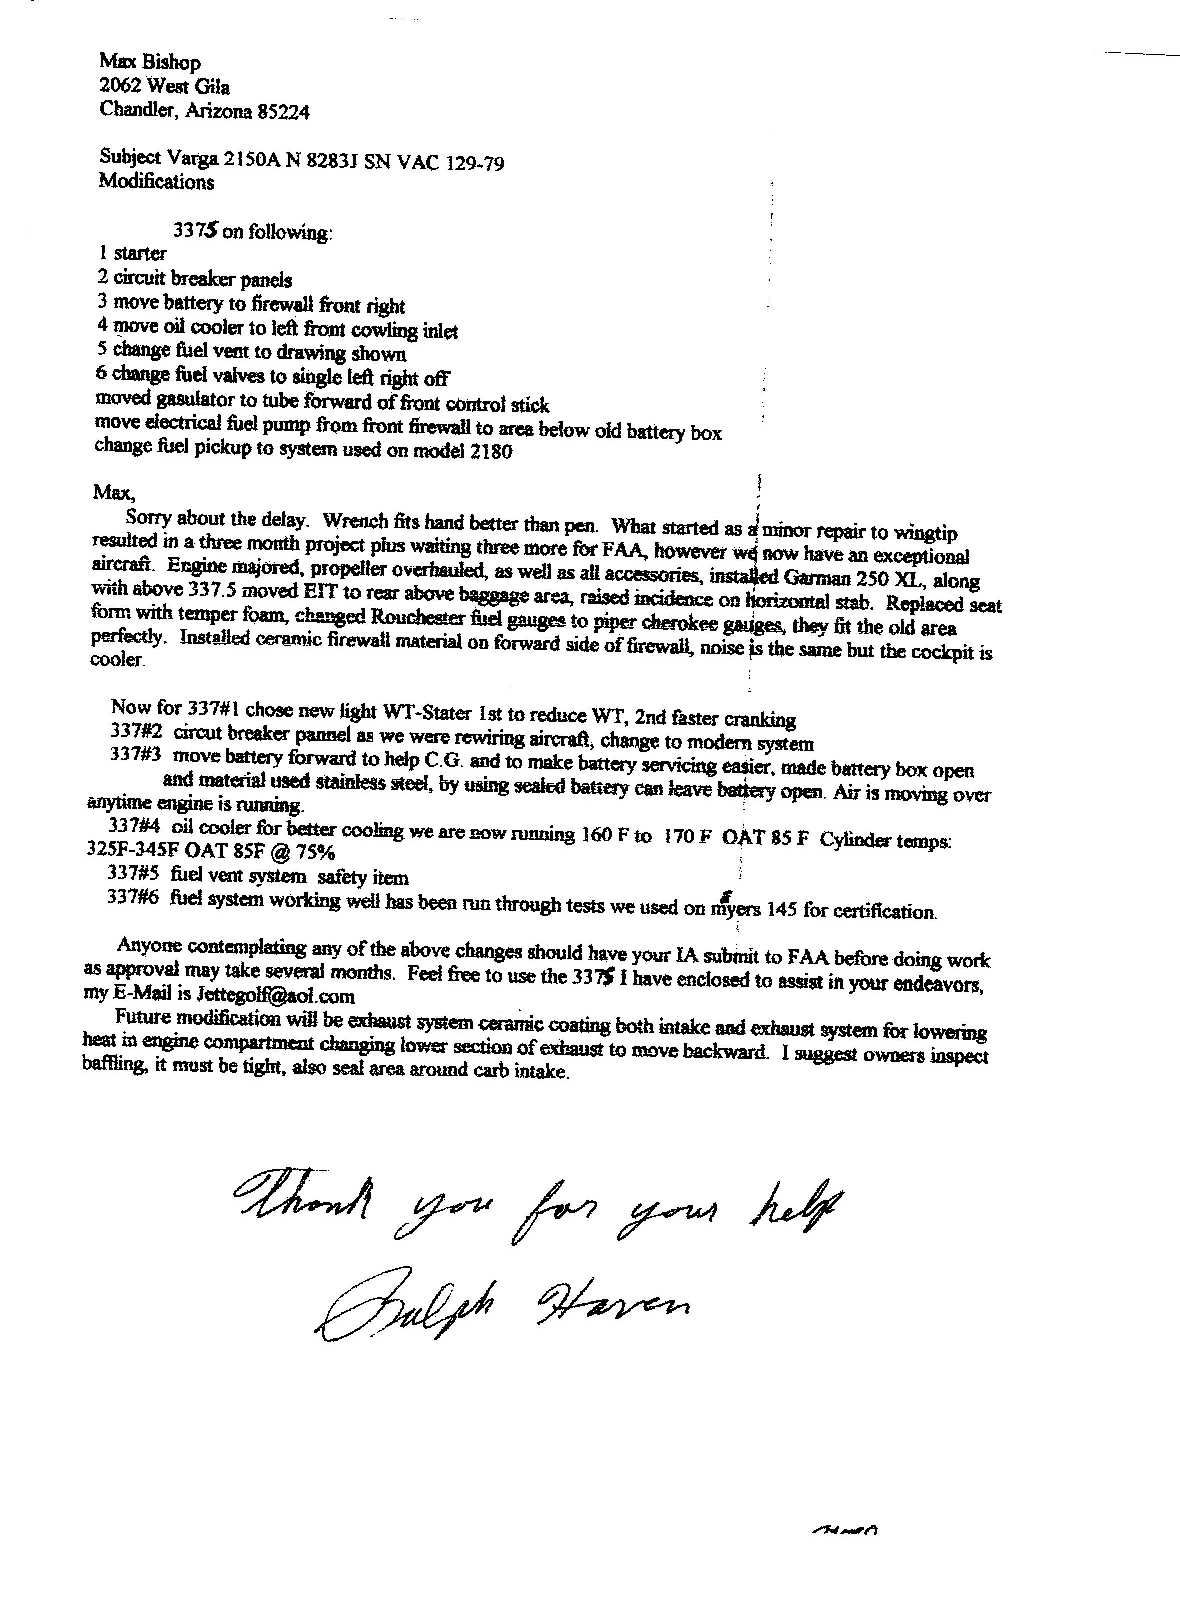 Max Bishop
2062 West Gila
Chandler, Arizona 85224
Subject Varga 2150A N 8283J SN VAC 129-79
Modifications
337S on following:
1 starter
2 circuit breaker panels
3 move battery to firewall front right
4 move oil cooler to left front cowling inlet
5 change fuel vent to drawing shown
6 change fuel valves to single left right off
moved gasulator to tube forward of front control stick
move electrical fuel pump from front firewall to area below old battery box
change fuel pickup to system used on model 2180
Max,
Sorry about the delay. Wrench fits hand better than pen. What started as a minor repair to wingtip
resulted in a three month project plus waiting three more for FAA, however we now have an exceptional
aircraft. Engine majored, propeller overhauled, as well as all accessories, installed Garman 250 XL, along
with above 337.5 moved EIT to rear above baggage area, raised incidence on horizontal stab. Replaced seat
form with temper foam, changed Rouchester fuel gauges to piper cherokee gauges, they fit the old area
perfectly. Installed ceramic firewall material on forward side of firewall, noise is the same but the cockpit is
cooler.
Now for 337#1 chose new light WT-Stater 1st to reduce WT, 2nd faster cranking
337#2 circut breaker pannel as we were rewiring aircraft, change to modern system
337#3 move battery forward to help C.G. and to make battery servicing easier, made battery box open
and material used stainless steel, by using sealed battery can leave battery open. Air is moving over
anytime engine is running.
337#4 oil cooler for better cooling we are now running 160 F to 170 F OAT 85 F Cylinder temps:
325F-345F OAT 85F @ 75%
337#5 fuel vent system safety item
337#6 fuel system working well has been run through tests we used on myers 145 for certification.
Anyone contemplating any of the above changes should have your IA submit to FAA before doing work
as approval may take several months. Feel free to use the 337S I have enclosed to assist in your endeavors,
my E-Mail is Jettegolf@aol.com
Future modification will be exhaust system ceramic coating both intake and exhaust system for lowering
heat in engine compartment changing lower section of exhaust to move backward. I suggest owners inspect
baffling, it must be tight, also seal area around carb intake.
Thank you for your help
Ralph Haven